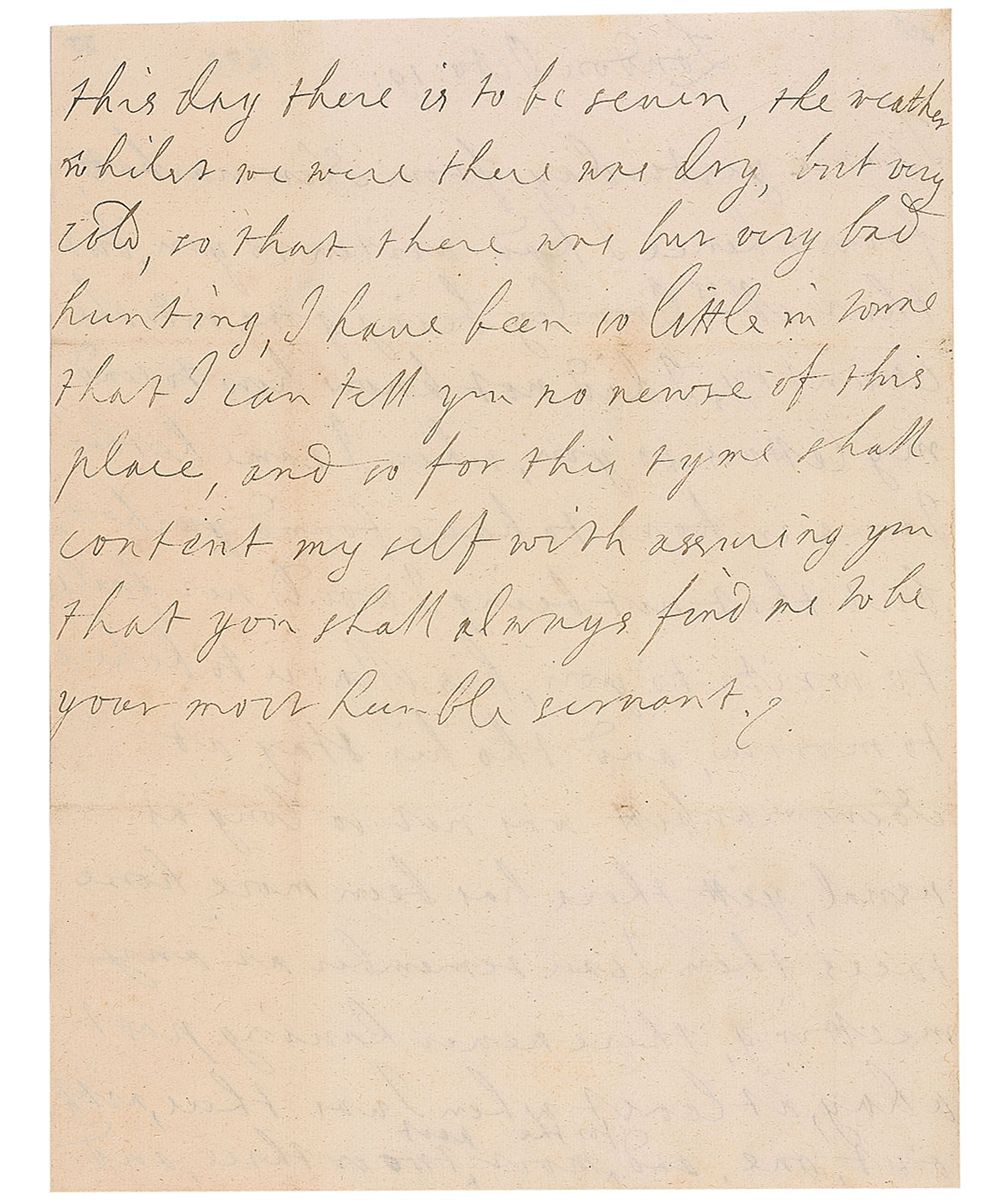 this day there is to be seven, the weather
whilst we were there was dry, but very
cold, so that there was but very bad
hunting, I have been so little in towne
that I can tell you no newse of this
place, and so for this tyme shall
content my self with assuring you
that you shall always find me to be
your most humble servant.